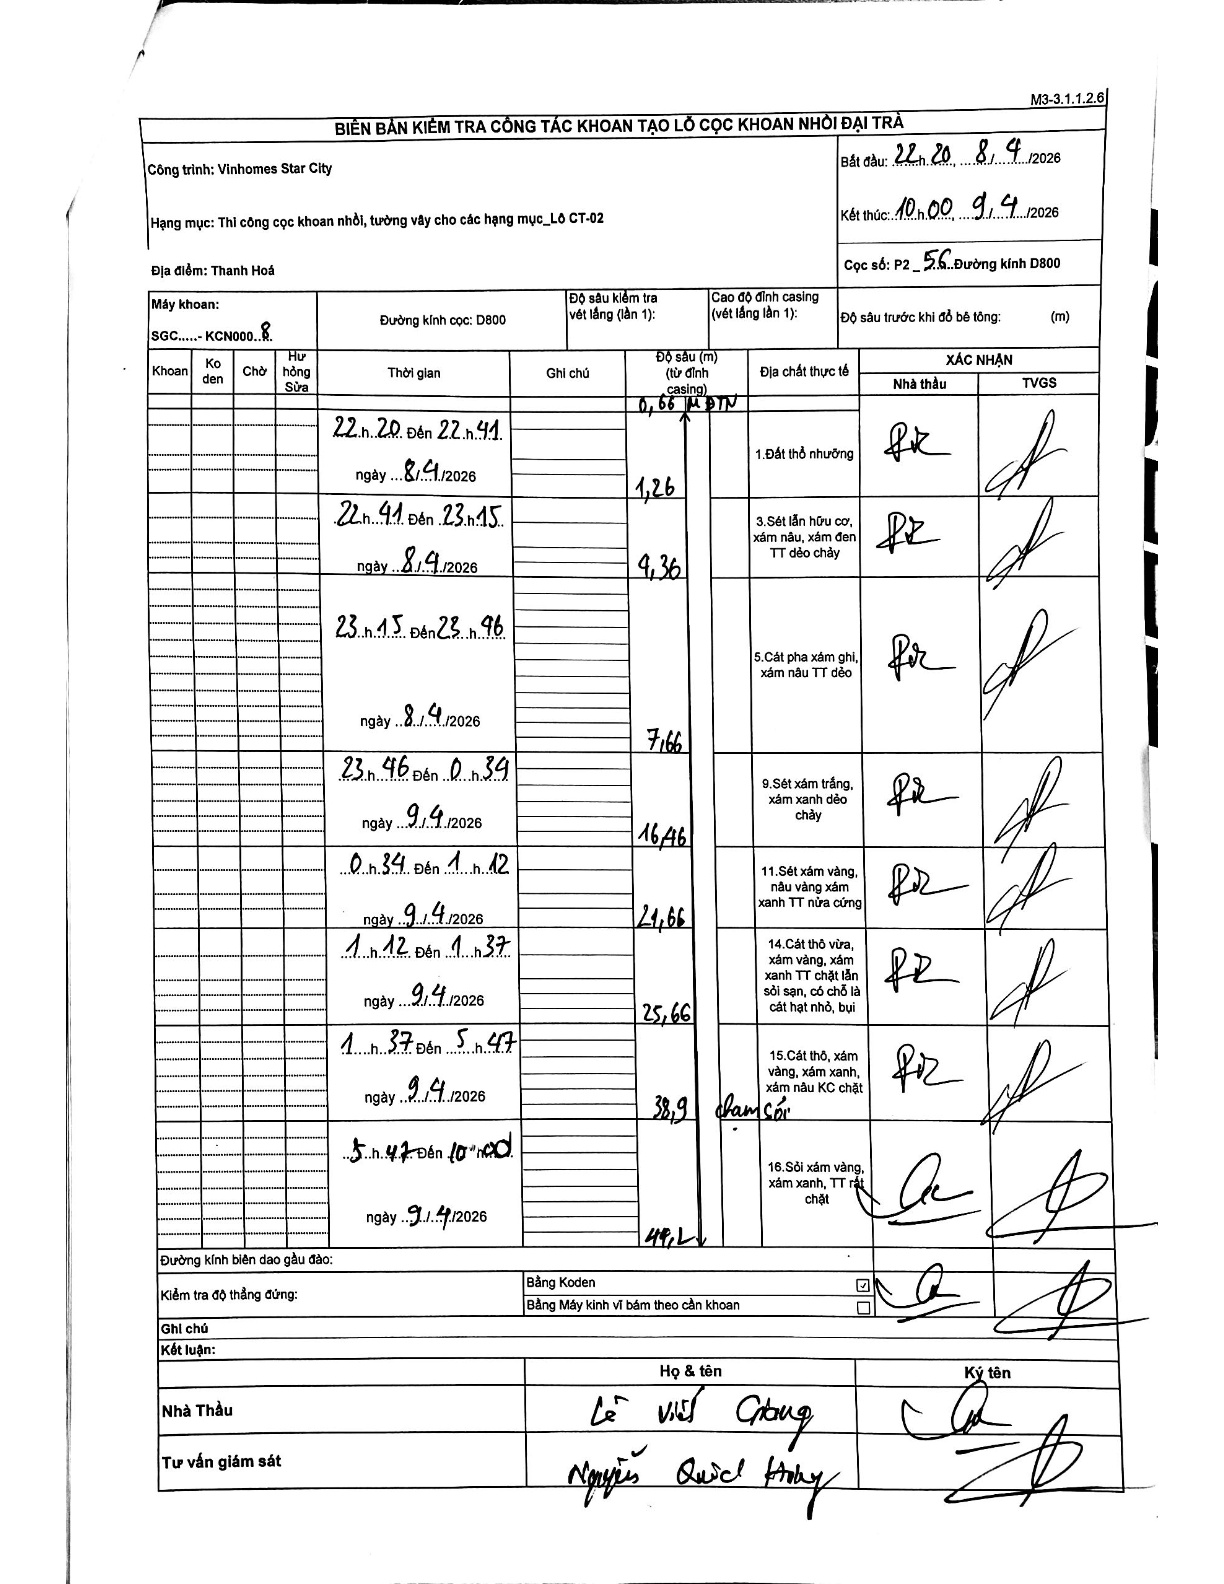 M3-3.1.1.2.6
BIÊN BẢN KIỂM TRA CÔNG TÁC KHOAN TẠO LỖ CỌC KHOAN NHỒI ĐẠI TRÀ
Công trình: Vinhomes Star City
Bắt đầu: 22h 20, 8/4/2026
Hạng mục: Thi công cọc khoan nhồi, tường vây cho các hạng mục_Lô CT-02
Kết thúc: 10h00, 9/4/2026
Địa điểm: Thanh Hoá
Cọc số: P2_56 Đường kính D800
Máy khoan:
SGC.....- KCN000..8.
Đường kính cọc: D800
Độ sâu kiểm tra
vét lắng (lần 1):
Cao độ đỉnh casing
(vét lắng lần 1):
Độ sâu trước khi đổ bê tông: (m)
Khoan
Ko
den
Chờ
Hư
hỏng
Sửa
Thời gian
Ghi chú
Độ sâu (m)
(từ đỉnh
casing)
Địa chất thực tế
XÁC NHẬN
Nhà thầu
TVGS
0,66 MĐTN
22h 20 Đến 22h 41
ngày 8/4/2026
1,26
1.Đất thổ nhưỡng
22h 41 Đến 23h15
ngày 8/4/2026
4,36
3.Sét lẫn hữu cơ,
xám nâu, xám đen
TT dẻo chảy
23h15 Đến 23h 46
ngày 8/4/2026
7,66
5.Cát pha xám ghi,
xám nâu TT dẻo
23h 46 Đến 0h 34
ngày 9/4/2026
16,46
9.Sét xám trắng,
xám xanh dẻo
chảy
0h 34 Đến 1h 12
ngày 9/4/2026
21,66
11.Sét xám vàng,
nâu vàng xám
xanh TT nửa cứng
1h 12 Đến 1h 37
ngày 9/4/2026
25,66
14.Cát thô vừa,
xám vàng, xám
xanh TT chặt lẫn
sỏi sạn, có chỗ là
cát hạt nhỏ, bụi
1h 37 Đến 5h 47
ngày 9/4/2026
38,9
15.Cát thô, xám
vàng, xám xanh,
xám nâu KC chặt
chạm sỏi
5h 47 Đến 10h 00
ngày 9/4/2026
16.Sỏi xám vàng,
xám xanh, TT rất
chặt
Đường kính biên dao gầu đào:
Kiểm tra độ thẳng đứng:
Bằng Koden ☑
Bằng Máy kinh vĩ bám theo cần khoan ☐
Ghi chú
Kết luận:
Họ & tên
Ký tên
Nhà Thầu
Lê Viết
Tư vấn giám sát
Nguyễn